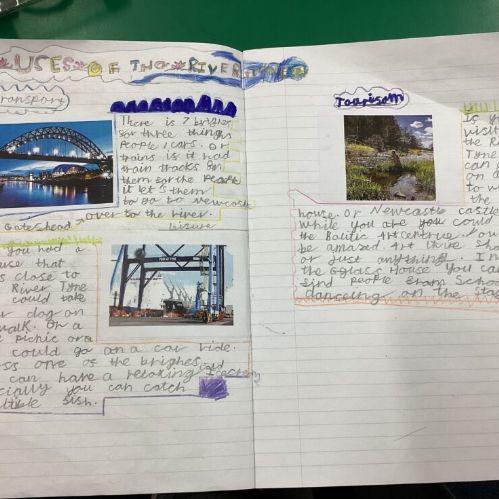 USES OF THE RIVER TYNE
Transport
There is 7 brighes
for three things
People, cars, or
trains Is it had
train tracks on
them for the People
it let's them
to go to Newcastle
Gateshead over to the river.
leisure
you had a
use that
s close to
River Tyne
could take
r dog on
walk. On a
picnic or a
could go on a car ride.
ss one of the brighes.
can have a relaxing
cially you can catch
fish.
PORT OF TYNE
Tourisam
is you
visit
the R
Tyne
can
on a
to w
the
house or Newcastle castle
while you are you could
the Baltic Art Centrue. You
be amazed. Art three Sh
or just anything. In
the Glass House you can
find people from School
danceing on the sta